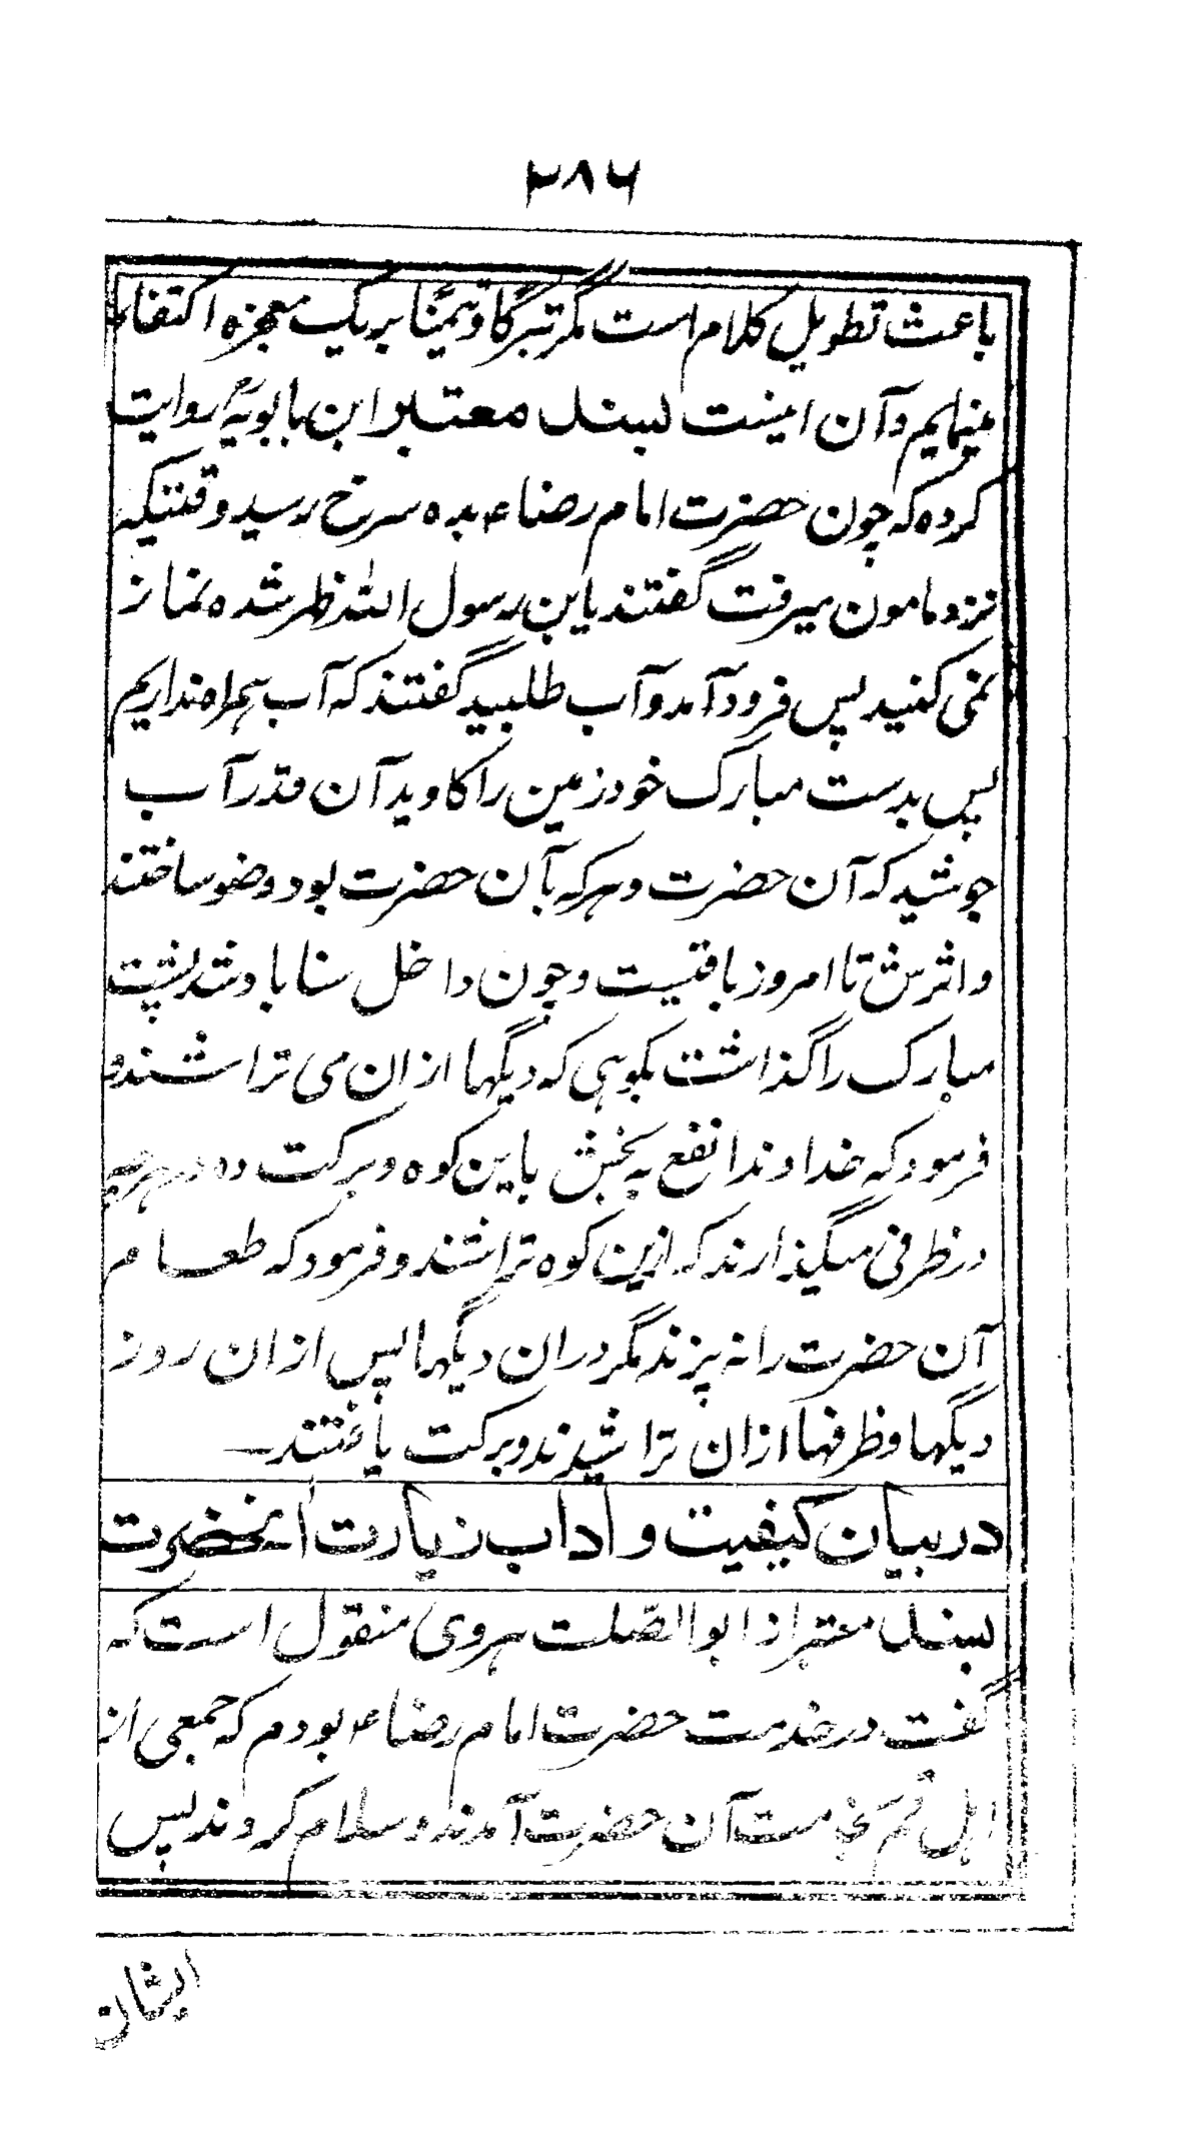 ۲۸۶
باعث تطویل کلام است مگر تبرّکاً و تیمّناً بر یک معجزه اکتفا
مینمایم و آن اینست بسند معتبر ابن بابویهؒ روایت
کرده که چون حضرت امام رضاء بده سرخ رسید وقتیکه
نزد مامون میرفت گفتند یابن رسول الله ظهر شده نماز
نمی کنید پس فرود آمد و آب طلبید گفتند که آب همراه نداریم
پس بدست مبارک خود زمین را کاوید آن قدر آب
جوشید که آن حضرت و هر که بآن حضرت بود وضو ساختند
و اثرش تا امروز باقیست و چون داخل سناباد شد پشت
مبارک را گذاشت بکوهی که دیگها ازان می تراشند و
فرمود که خداوندا نفع به بخش باین کوه و برکت ده در هرچه
در ظرفی میگذارند که ازین کوه تراشند و فرمود که طعام
آن حضرت را نه پزند مگر دران دیگها پس ازان روز
دیگها و ظرفها ازان تراشیدند و برکت یافتند
در بیان کیفیت و اداب زیارت آنحضرت
بسند معتبر از ابوالصّلت هروی منقول است که
گفت در خدمت حضرت امام رضاء بودم که جمعی از
اهل قم بخدمت آن حضرت آمدند و سلام کردند پس
ایشان